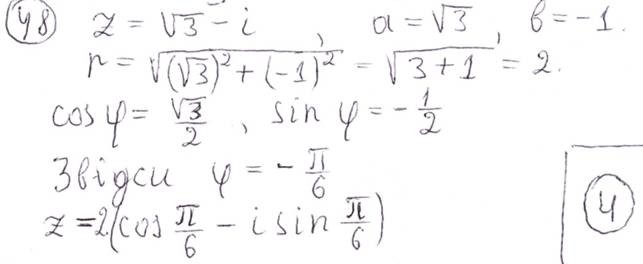 48 z = √3 - i, a = √3, b = -1.
r = √((√3)² + (-1)²) = √(3+1) = 2.
cos φ = √3/2, sin φ = -1/2
Звідси φ = -π/6
z = 2(cos π/6 - i sin π/6)
4